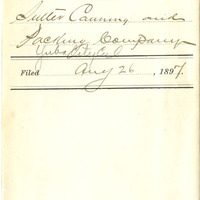 Sutter Canning and
Packing Company
Yuba City Cal
Filed Aug 26, 1897.